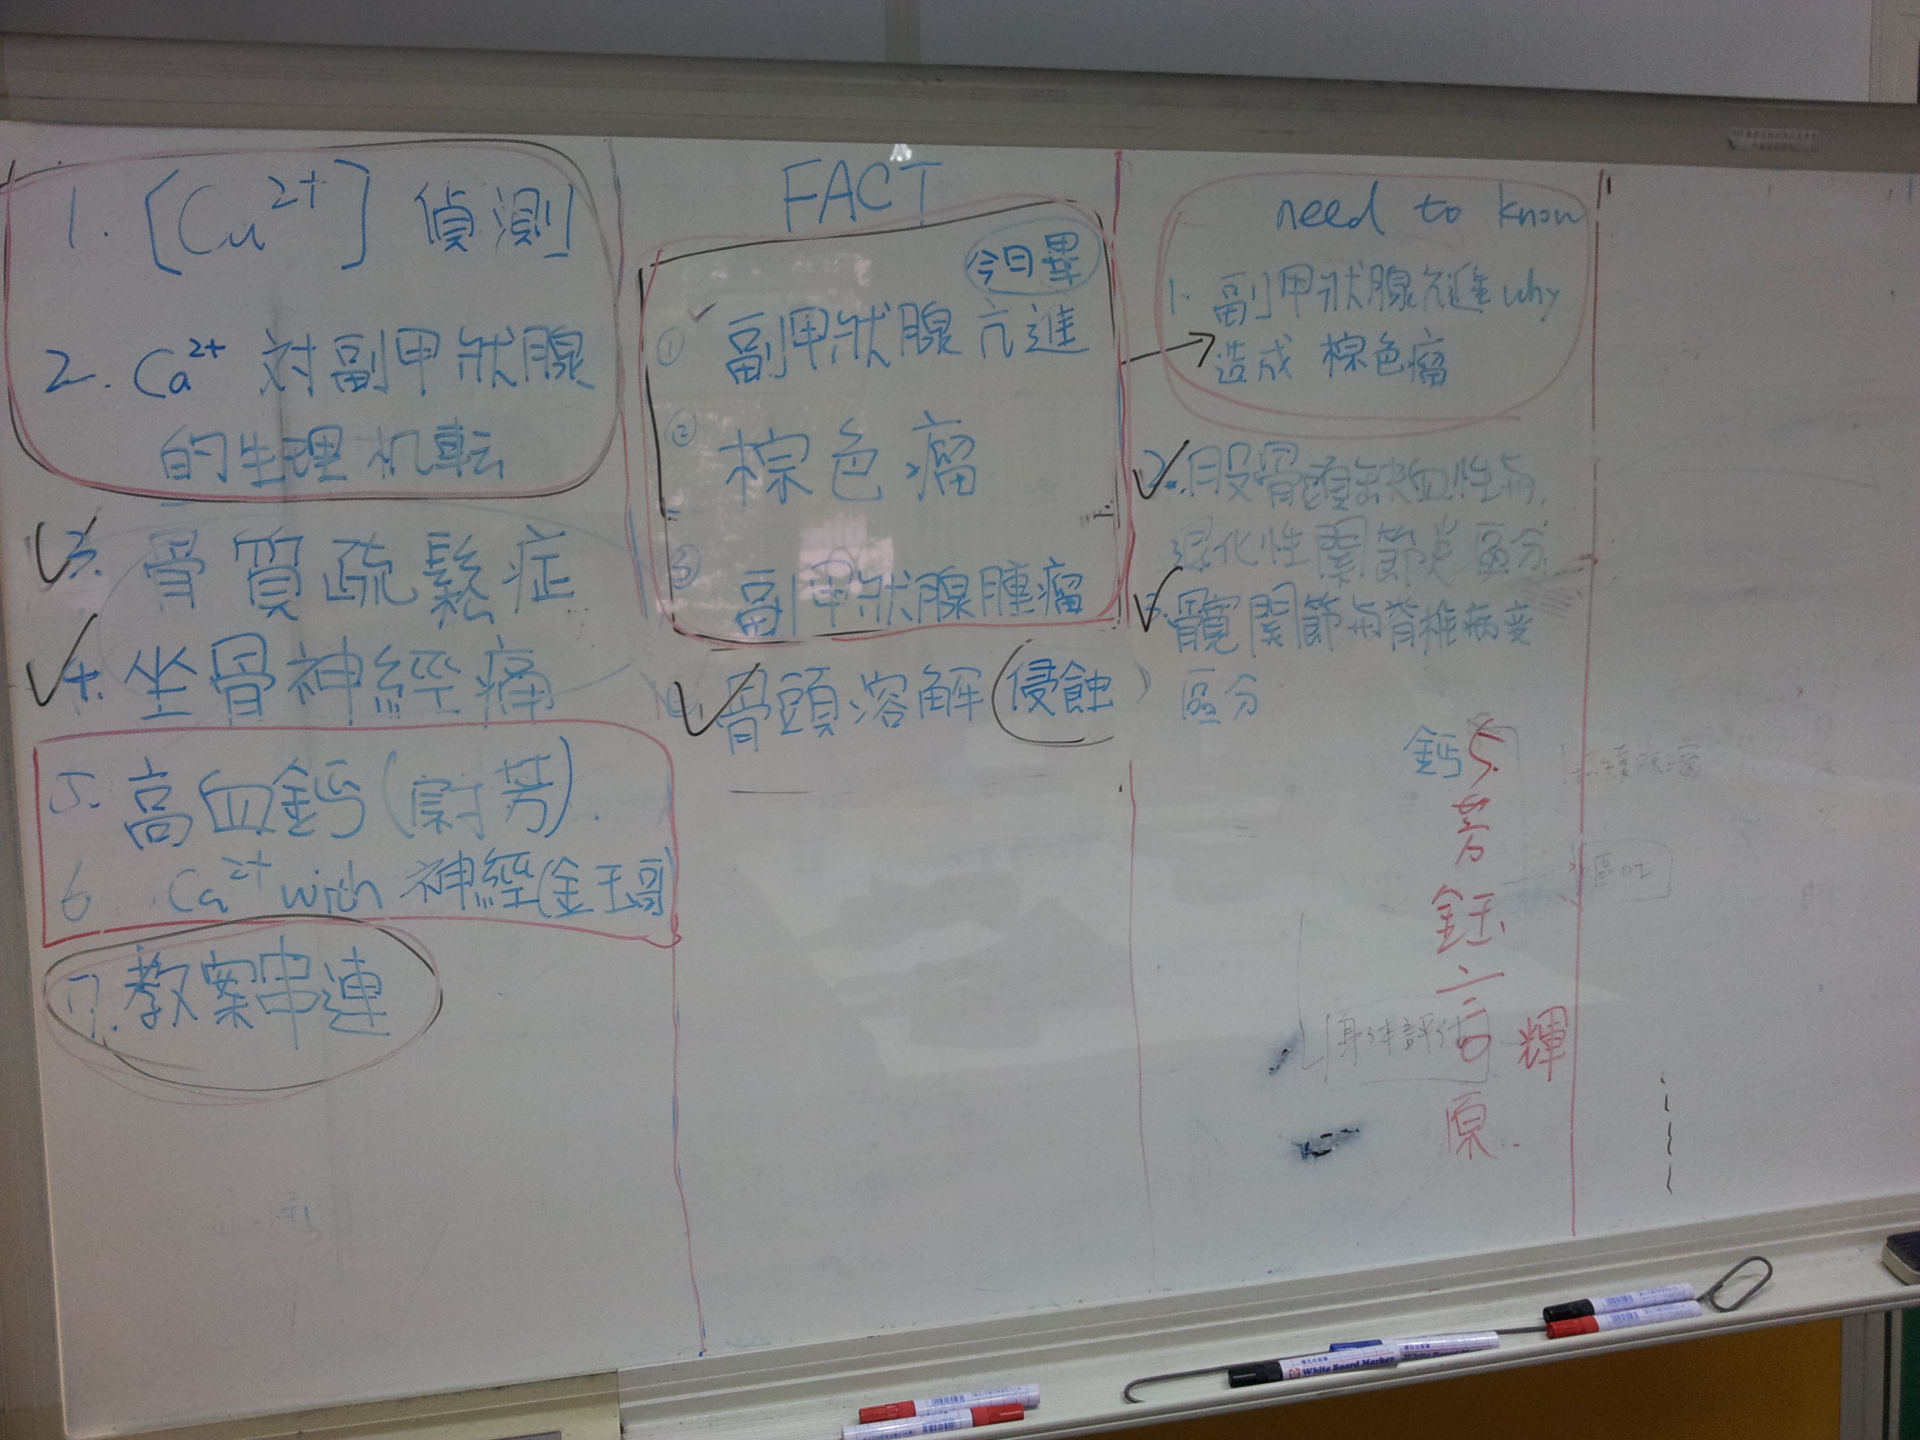 1. [Cu²⁺] 偵測
2. Ca²⁺ 対副甲狀腺
的生理机転
3. 骨質疏鬆症
4. 坐骨神經痛
5. 高血鈣(蔚芳).
6 Ca²⁺ with 神經(金玉哥)
7. 教案串連
FACT
今日畢
① 副甲狀腺亢進
② 棕色瘤
③ 副甲狀腺腫瘤
骨頭溶解(侵蝕)
need to know
1. 副甲狀腺亢進 why
造成 棕色瘤
2. 股骨頭缺血性与
退化性関節炎區分
3. 髖関節与脊椎病变
區分
鈣 5.
芳
鈺
言
輝
原.
身体評估
White Board Marker